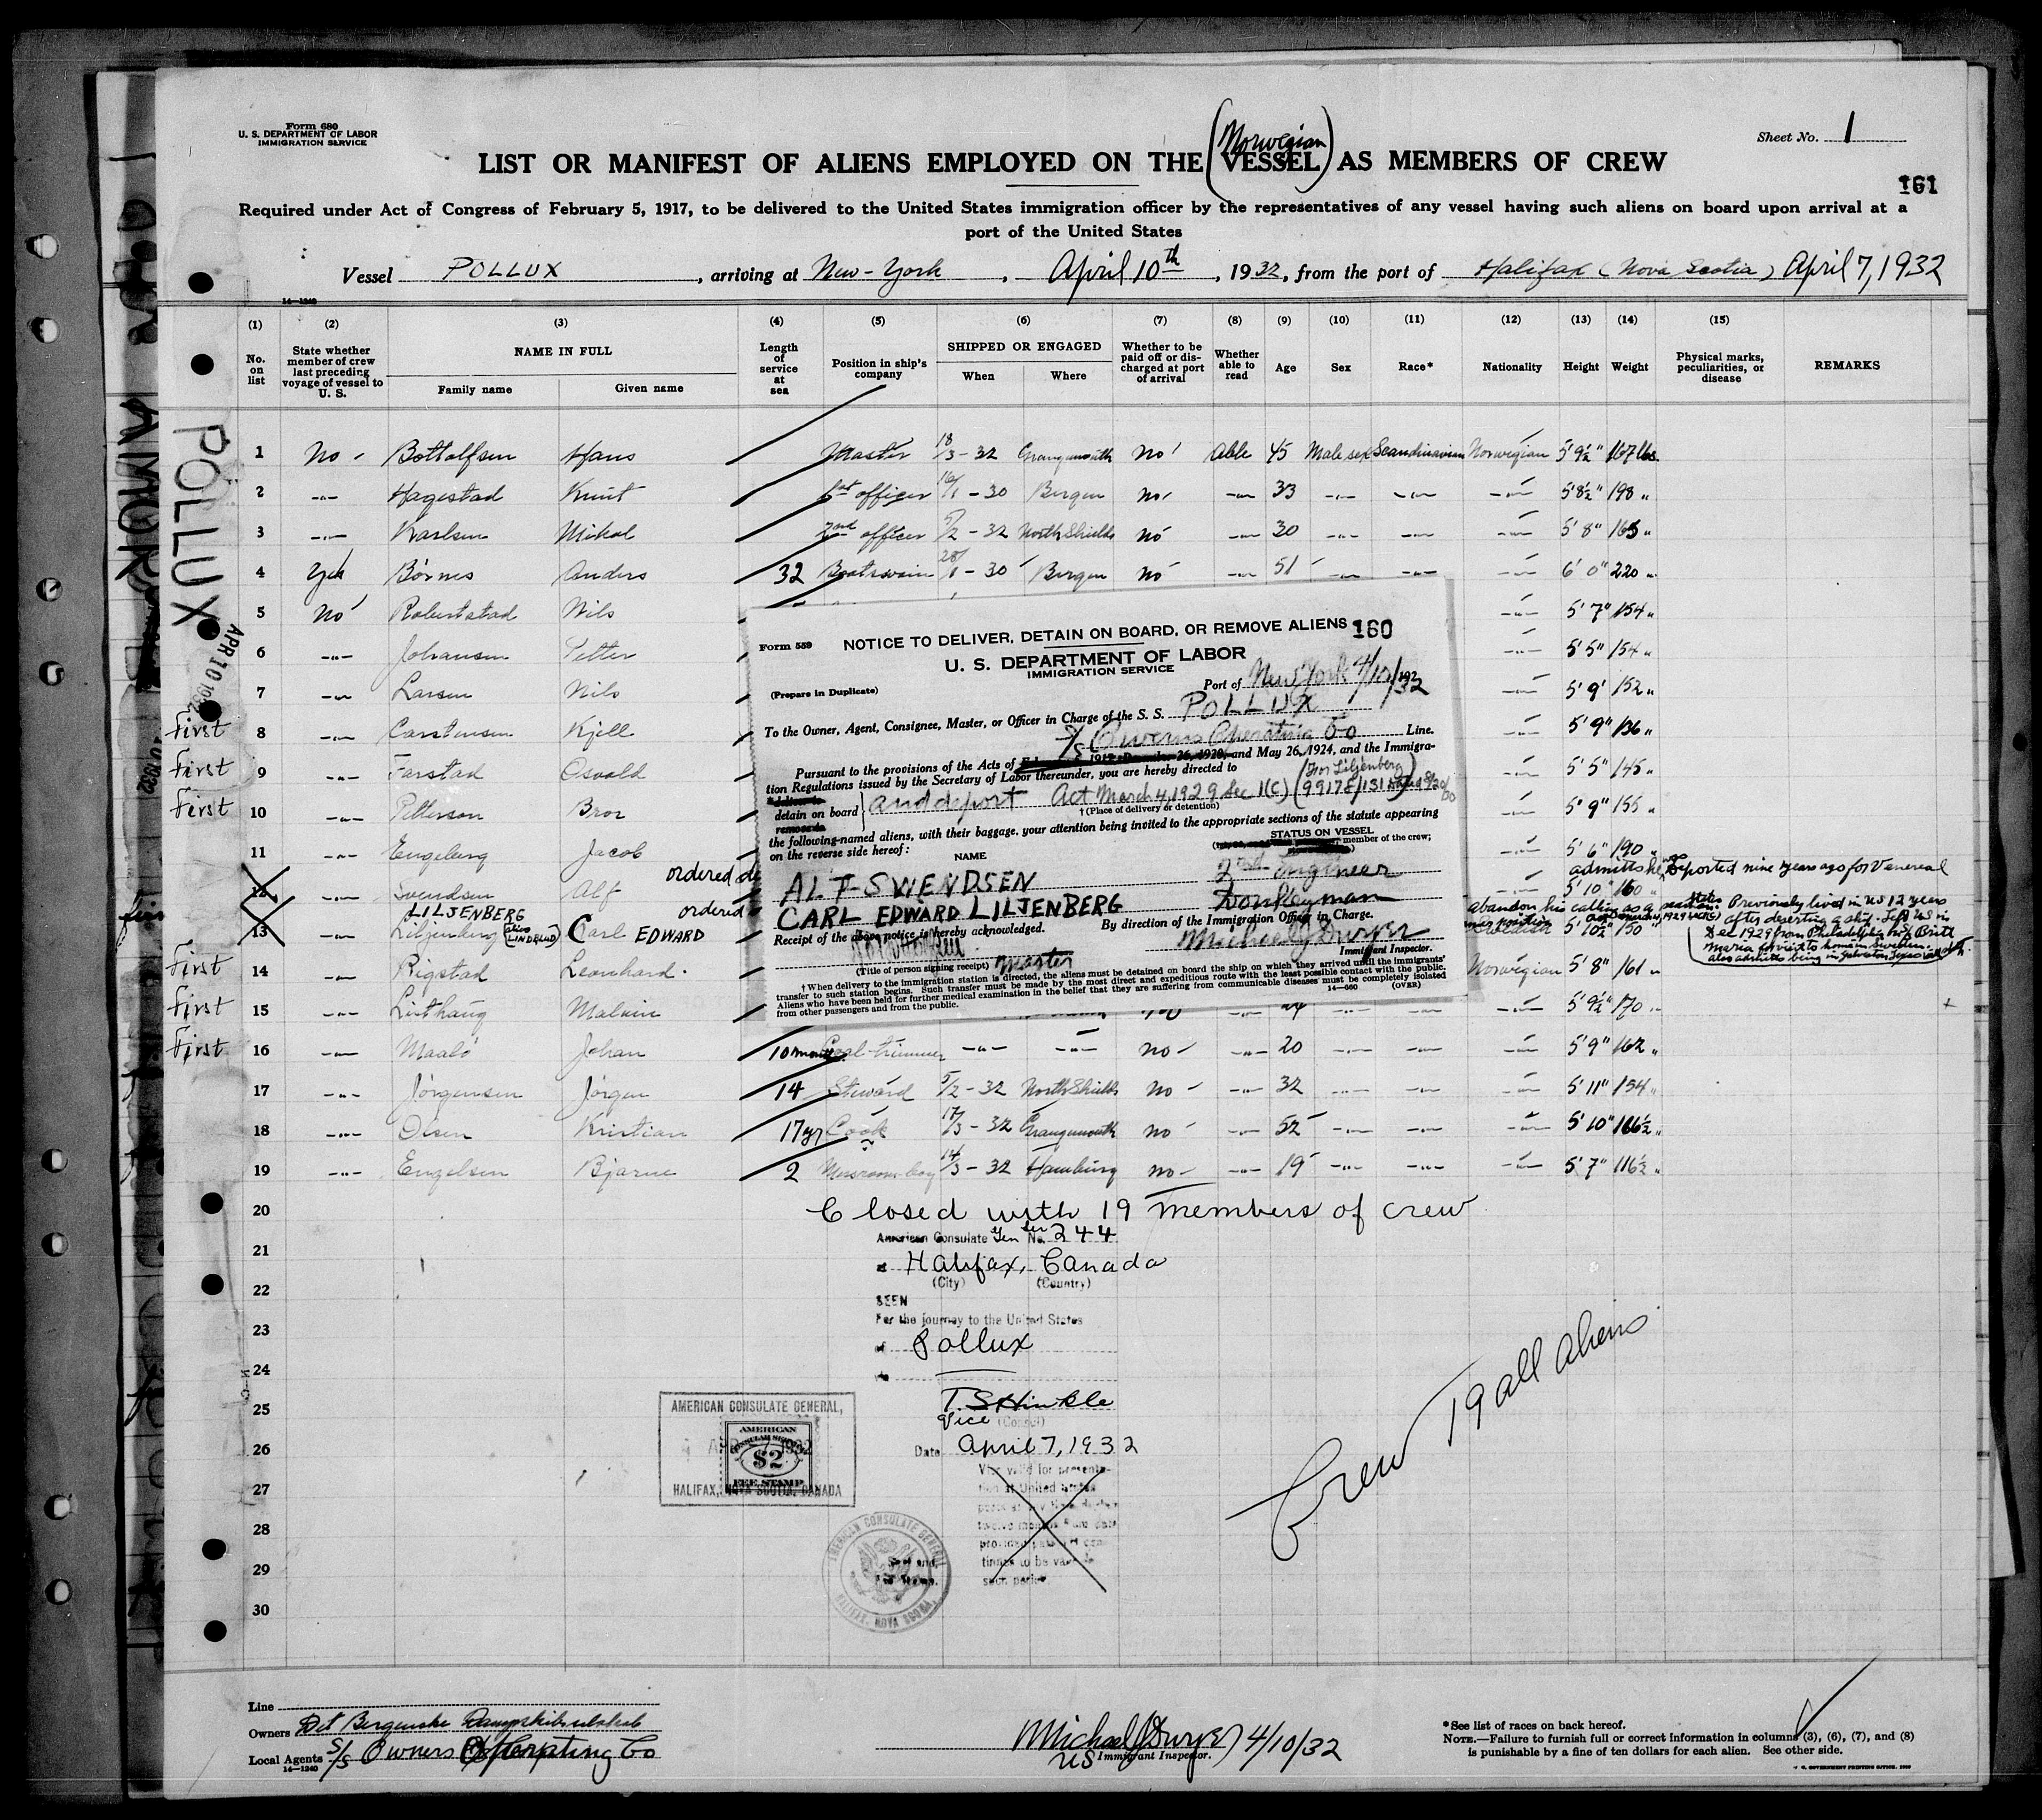 Form 680
U. S. DEPARTMENT OF LABOR
IMMIGRATION SERVICE
Sheet No. 1
LIST OR MANIFEST OF ALIENS EMPLOYED ON THE (Norwegian VESSEL) AS MEMBERS OF CREW
161
Required under Act of Congress of February 5, 1917, to be delivered to the United States immigration officer by the representatives of any vessel having such aliens on board upon arrival at a
port of the United States
Vessel POLLUX, arriving at New-York, April 10th, 1932, from the port of Halifax (Nova Scotia) April 7, 1932
14—1240
(1) (2) (3) (4) (5) (6) (7) (8) (9) (10) (11) (12) (13) (14) (15)
No. on list
State whether member of crew last preceding voyage of vessel to U. S.
NAME IN FULL
Family name Given name
Length of service at sea
Position in ship's company
SHIPPED OR ENGAGED
When Where
Whether to be paid off or discharged at port of arrival
Whether able to read
Age Sex Race* Nationality Height Weight
Physical marks, peculiarities, or disease
REMARKS
POLLUX
APR 10 1932
1 No - Bottolfsen Hans Master 18/3 - 32 Grangemouth No Able 45 Male sex Scandinavian Norwegian 5' 9½" 167 lbs.
2 -"- Hagestad Knut 1st officer 16/1 - 30 Bergen no -"- 33 -"- -"- -"- 5' 8½" 198 "
3 -"- Karlsen Mikal 2nd officer 5/2 - 32 North Shields no -"- 30 -"- -"- -"- 5' 8" 165 "
4 Yes Børnes Anders 32 Boatswain 28/1 - 30 Bergen no -"- 51 -"- -"- -"- 6' 0" 220 "
5 no Robertstad Nils -"- 5' 7" 154 "
6 -"- Johansen Petter -"- 5' 5" 154 "
7 -"- Larsen Nils -"- 5' 9' 152 "
First 8 -"- Carstensen Kjell -"- 5' 9" 136 "
First 9 -"- Farstad Osvald -"- 5' 5" 145 "
First 10 -"- Petterson Bror -"- 5' 9" 155 "
11 -"- Engeberg Jacob -"- 5' 6" 190 "
12 -"- Svendsen Alf ordered de -"- 5' 10" 160 "
admits being deported nine years ago for Venereal
LILJENBERG
13 -"- Liljenberg (alias LINDBLAD) Carl EDWARD ordered 5' 10½" 150 "
abandon his calling as a seaman. Previously lived in US 12 years
after deserting a ship. Left US in
Dec 1929 from Philadelphia on S/S Britt
Maria for visit to home in Sweden.
also admits being in Galveston Texas
First 14 -"- Rigstad Leonhard. Norwegian 5' 8" 161 "
First 15 -"- Linthaug Malvin -"- 5' 9½" 170 "
First 16 -"- Maalö Johan 10 months Coal-trimmer -"- -"- no - -"- 20 -"- -"- -"- 5' 9" 162 "
17 -"- Jørgensen Jørgen 14 Steward 5/2 - 32 North Shields no - -"- 32 -"- -"- -"- 5' 11" 154 "
18 -"- Olsen Kristian 17 yr Cook 17/3 - 32 Grangemouth no -"- 52 -"- -"- -"- 5' 10" 166½ "
19 -"- Engelsen Bjarne 2 Messroom-boy 14/3 - 32 Hamburg no - -"- 19 -"- -"- -"- 5' 7" 116½ "
Form 559
NOTICE TO DELIVER, DETAIN ON BOARD, OR REMOVE ALIENS
160
U. S. DEPARTMENT OF LABOR
IMMIGRATION SERVICE
(Prepare in Duplicate)
Port of New York 4/10/32
To the Owner, Agent, Consignee, Master, or Officer in Charge of the S. S. POLLUX
S/S Owners Operating Co Line.
Pursuant to the provisions of the Acts of February 5, 1917, December 26, 1920, and May 26, 1924, and the Immigra-
tion Regulations issued by the Secretary of Labor thereunder, you are hereby directed to
deliver to
detain on board } and deport Act March 4, 1929 Sec 1(c) (For Liljenberg 99178/131
remove to
†(Place of delivery or detention)
the following-named aliens, with their baggage, your attention being invited to the appropriate sections of the statute appearing
on the reverse side hereof:
NAME
STATUS ON VESSEL
member of the crew;
ALF SWENDSEN 2nd Engineer
CARL EDWARD LILJENBERG Donkeyman
Receipt of the above notice is hereby acknowledged.
By direction of the Immigration Officer in Charge.
Michael J Dwyer
Immigrant Inspector.
Master
(Title of person signing receipt)
†When delivery to the immigration station is directed, the aliens must be detained on board the ship on which they arrived until the immigrants'
transfer to such station begins. Such transfer must be made by the most direct and expeditious route with the least possible contact with the public.
Aliens who have been held for further medical examination in the belief that they are suffering from communicable diseases must be completely isolated
from other passengers and from the public.
14—660
(OVER)
20
21
22
23
24
25
26
27
28
29
30
Closed with 19 members of crew
American Consulate Gen Ser No. 244
at Halifax, Canada
(City) (Country)
SEEN
For the journey to the United States
of Pollux
via
T. S Hinkle
Vice (Consul)
Date April 7, 1932
Visa valid for presenta-
tion at United States
ports at any time during
twelve months from date
provided passport con-
tinues to be valid for
such period.
AMERICAN CONSULATE GENERAL,
APR 7 1932
AMERICAN
CONSULAR SERVICE
$2
FEE STAMP
HALIFAX, NOVA SCOTIA, CANADA
AMERICAN CONSULATE GENERAL
HALIFAX, NOVA SCOTIA.
Seal and
Fee Stamp.
Crew 19 all aliens
Line
Owners Det Bergenske Dampskibsselskab
Local Agents S/S Owners Operating Co
14—1240
Michael J Dwyer 4/10/32
US Immigrant Inspector.
*See list of races on back hereof.
NOTE.—Failure to furnish full or correct information in columns (3), (6), (7), and (8)
is punishable by a fine of ten dollars for each alien. See other side.
U. S. GOVERNMENT PRINTING OFFICE: 1930